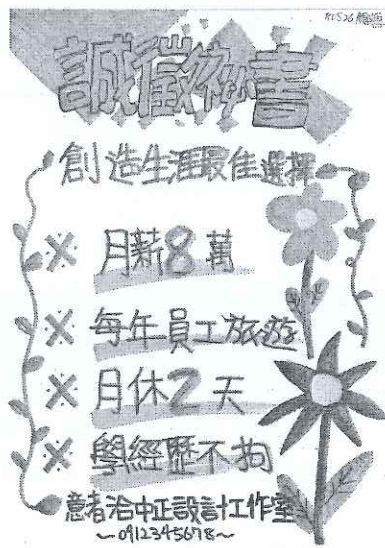 誠徵秘書
創造生涯最佳選擇
月薪8萬
每年員工旅遊
月休2天
學經歷不拘
意者洽中正設計工作室
～0912345678～